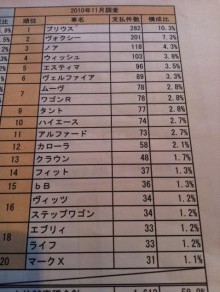 2010年11月調査
順位 車名 支払件数 構成比
1 プリウス 282 10.3%
2 ヴォクシー 201 7.3%
3 ノア 118 4.3%
4 ウィッシュ 103 3.8%
5 エスティマ 96 3.5%
6 ヴェルファイア 89 3.3%
7 ムーヴ 78 2.8%
ワゴンR 78 2.8%
9 タント 77 2.8%
10 ハイエース 74 2.7%
11 アルファード 73 2.7%
12 カローラ 58 2.1%
13 クラウン 48 1.7%
14 フィット 37 1.3%
15 bB 36 1.3%
16 ヴィッツ 34 1.2%
ステップワゴン 34 1.2%
18 エブリィ 33 1.2%
ライフ 33 1.2%
20 マークX 31 1.1%